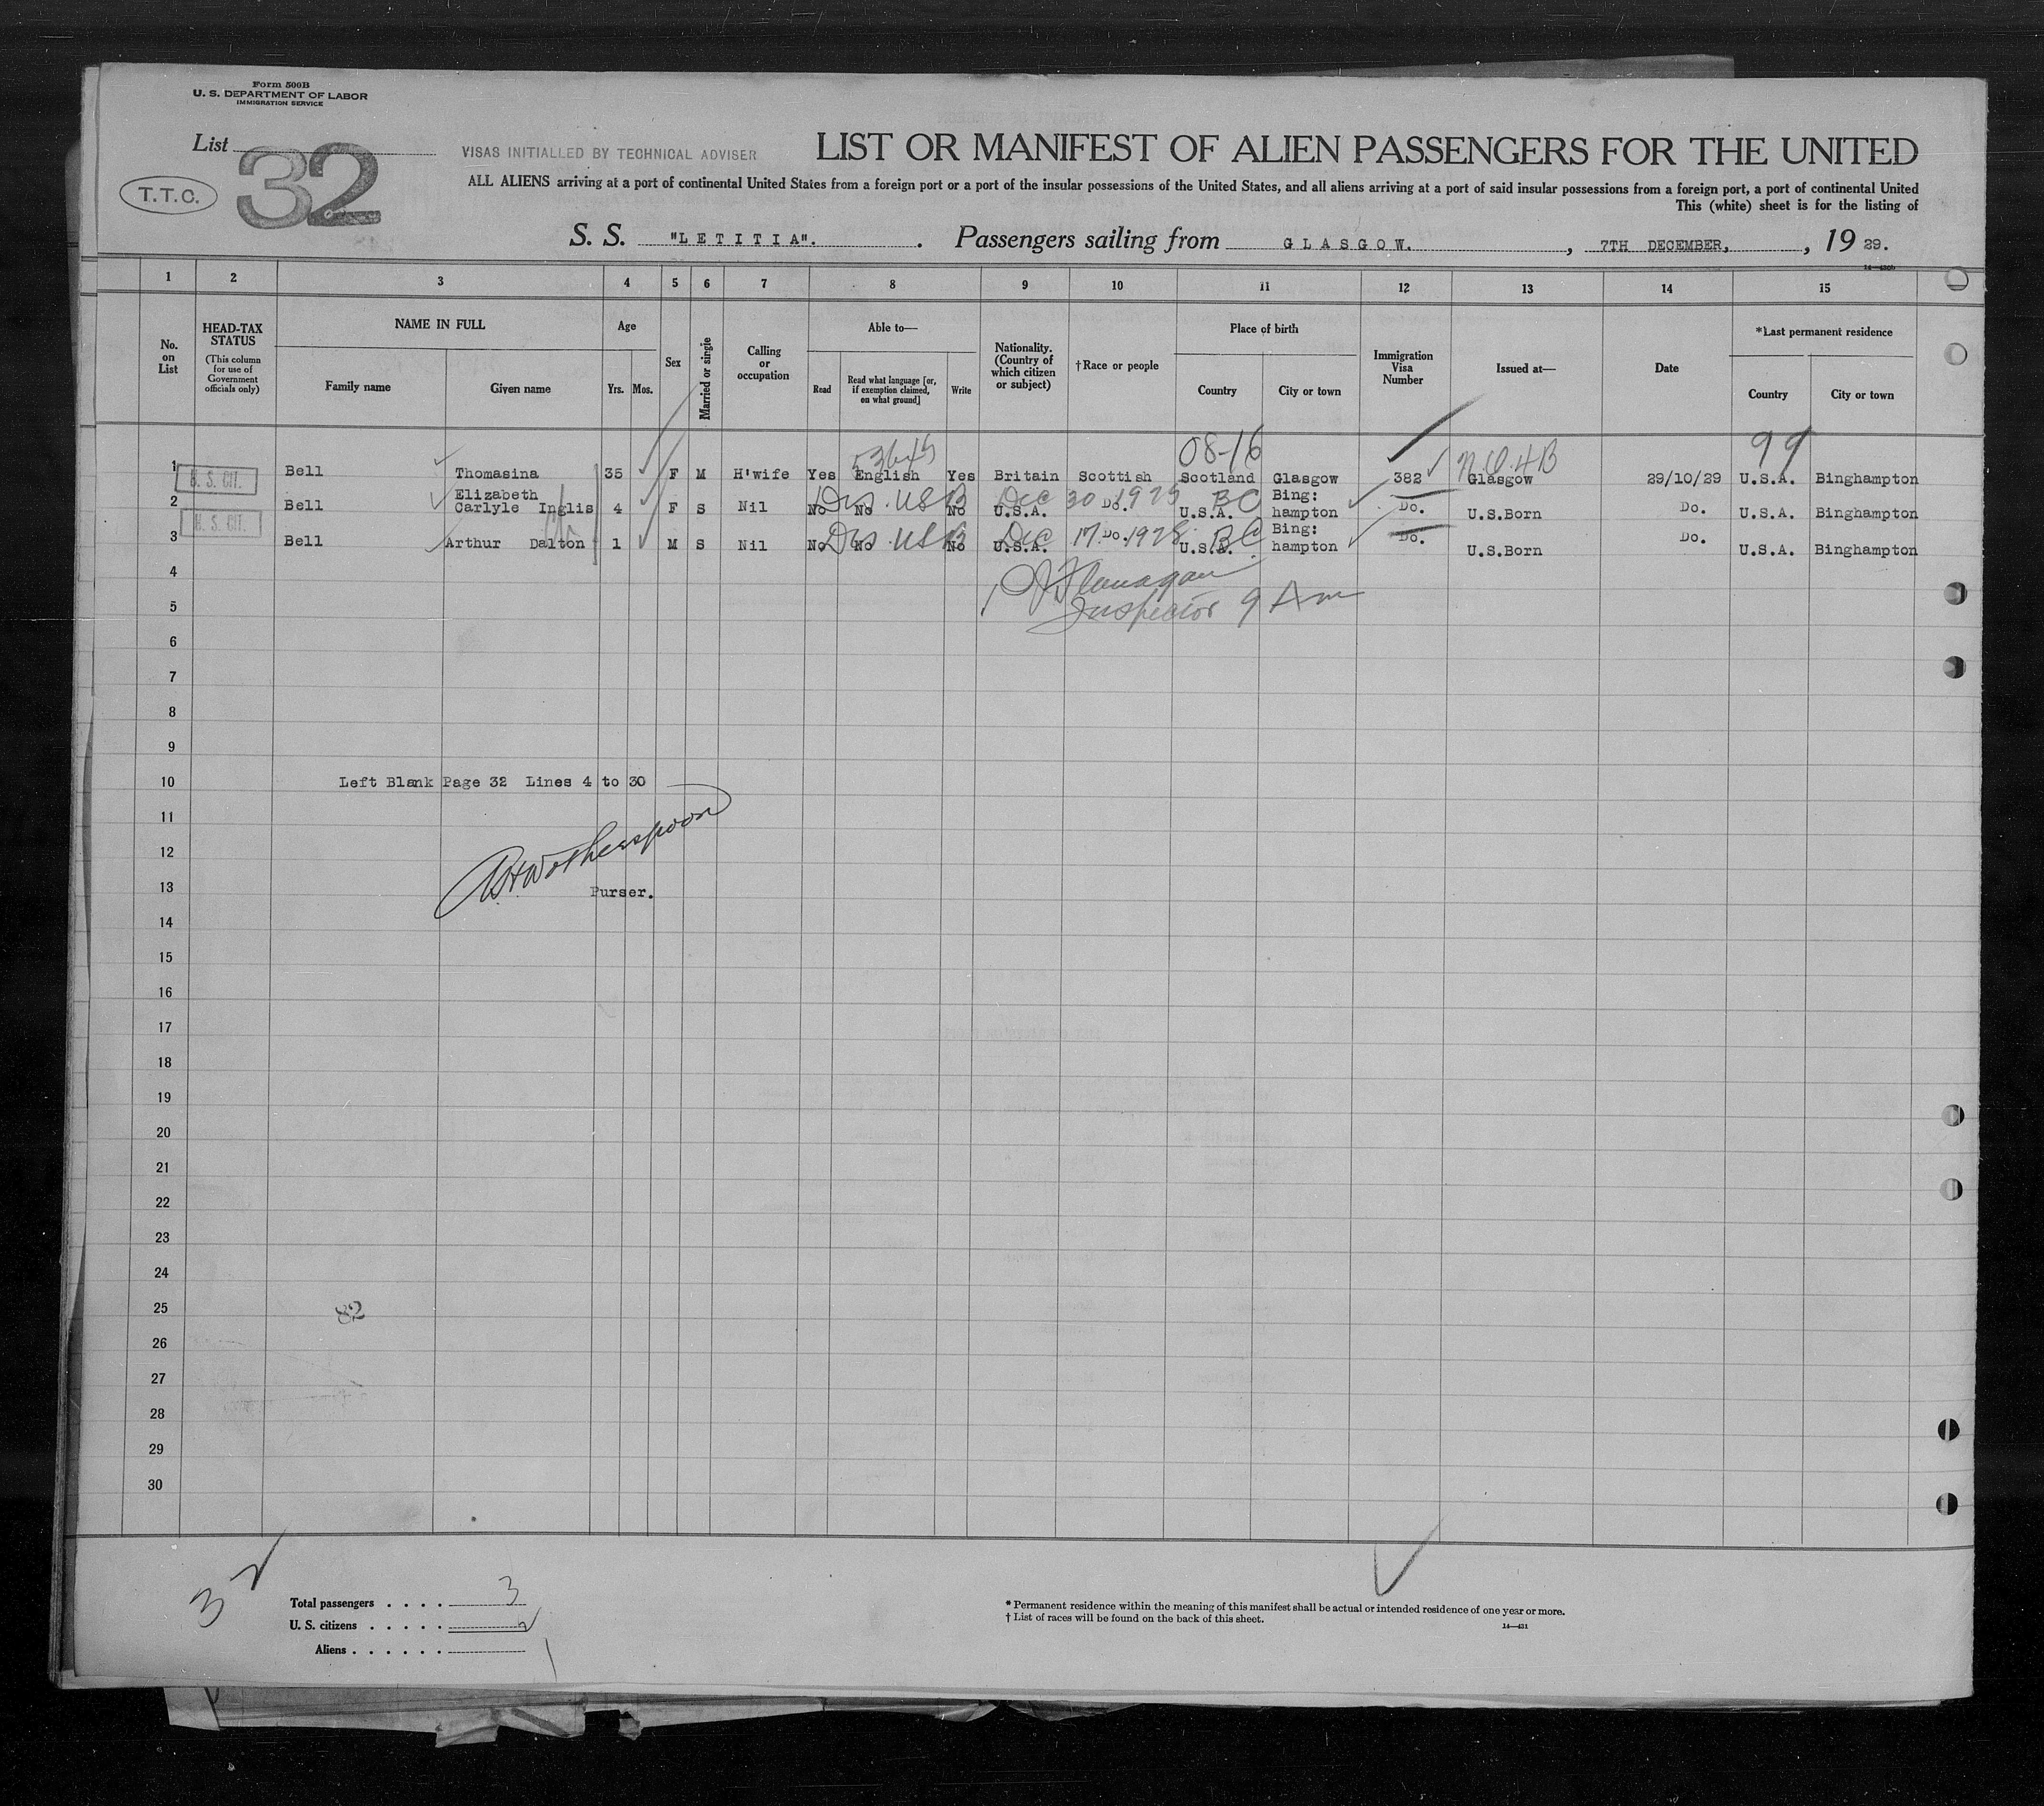 Form 500B
U. S. DEPARTMENT OF LABOR
IMMIGRATION SERVICE
List 32
T.T.C.
VISAS INITIALLED BY TECHNICAL ADVISER
LIST OR MANIFEST OF ALIEN PASSENGERS FOR THE UNITED
ALL ALIENS arriving at a port of continental United States from a foreign port or a port of the insular possessions of the United States, and all aliens arriving at a port of said insular possessions from a foreign port, a port of continental United
This (white) sheet is for the listing of
S. S. "LETITIA". Passengers sailing from GLASGOW. , 7TH DECEMBER, , 19 29.
1 2 3 4 5 6 7 8 9 10 11 12 13 14 15
No. on List
HEAD-TAX STATUS (This column for use of Government officials only)
NAME IN FULL
Family name Given name
Age
Yrs. Mos.
Sex
Married or single
Calling or occupation
Able to—
Read Read what language [or, if exemption claimed, on what ground] Write
Nationality. (Country of which citizen or subject)
†Race or people
Place of birth
Country City or town
Immigration Visa Number
Issued at—
Date
*Last permanent residence
Country City or town
08-16 99
1 Bell Thomasina 35 F M H'wife Yes English Yes Britain Scottish Scotland Glasgow 382 Glasgow 29/10/29 U.S.A. Binghampton
U. S. CIT.
2 Bell Elizabeth Carlyle Inglis 4 F S Nil No No No U.S.A. Do. U.S.A. Bing: hampton Do. U.S.Born Do. U.S.A. Binghampton
USB Dec 30 1925 BC
U. S. CIT.
3 Bell Arthur Dalton 1 M S Nil No No No U.S.A. Do. U.S.A. Bing: hampton Do. U.S.Born Do. U.S.A. Binghampton
USB Dec 17 1928 BC
4
Flanagan
5
Inspector 9 Am
6
7
8
9
10 Left Blank Page 32 Lines 4 to 30
11
12
Wotherspoon
13 Purser.
14
15
16
17
18
19
20
21
22
23
24
25
82
26
27
28
29
30
32
Total passengers . . . . 3
U. S. citizens . . . . . 2
Aliens . . . . . . 1
* Permanent residence within the meaning of this manifest shall be actual or intended residence of one year or more.
† List of races will be found on the back of this sheet.
14—431